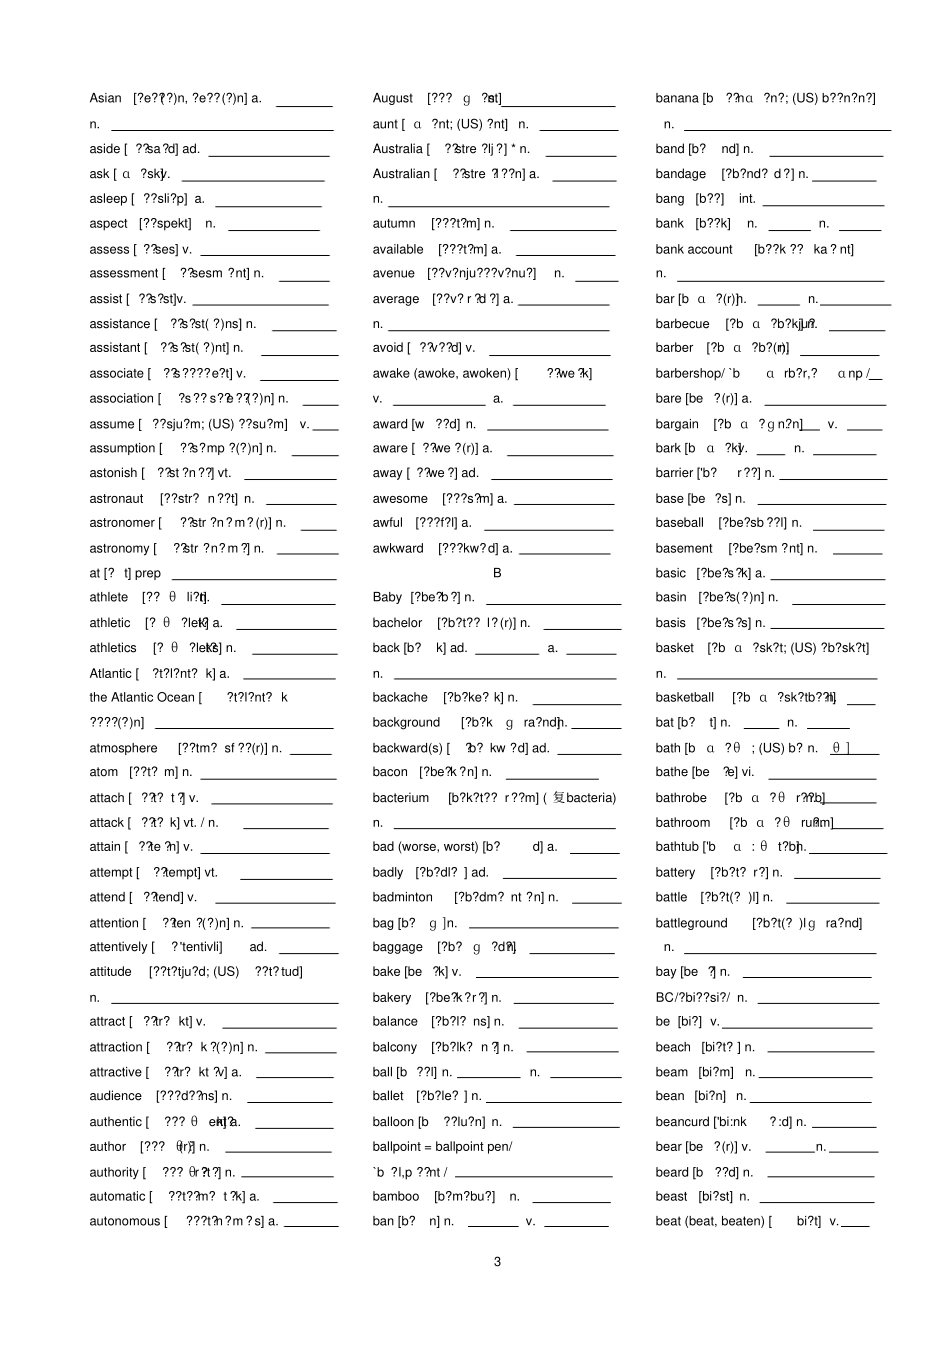 Asian [?e??(??)n, ?e??(?)n] a. ________
n. ________
aside [ ??sa?d] ad. ________
ask [ ɑ ?sk]v. ________
asleep [ ??sli?p] a. ________
aspect [??spekt] n. ________
assess [ ??ses] v. ________
assessment [ ??sesm ?nt] n. ________
assist [ ??s?st]v. ________
assistance [ ??s?st( ?)ns] n. ________
assistant [ ??s?st( ?)nt] n. ________
associate [ ??s????e?t] v. ________
association [ ?s?? s??e??(?)n] n. ________
assume [ ??sju?m; (US) ??su?m] v. ________
assumption [ ??s?mp ?(?)n] n. ________
astonish [ ??st ?n ??] vt. ________
astronaut [??str? n ??t] n. ________
astronomer [ ??str ?n?m?(r)] n. ________
astronomy [ ??str ?n?m?] n. ________
at [? t] prep ________
athlete [?? θ li?t]n. ________
athletic [? θ ?let?k] a. ________
athletics [? θ ?let?ks] n. ________
Atlantic [?t?l?nt? k] a. ________
the Atlantic Ocean [ ?t?l?nt? k
????(?)n] ________
atmosphere [??tm? sf ??(r)] n. ________
atom [??t? m] n. ________
attach [ ??t? t ?] v. ________
attack [ ??t? k] vt. / n. ________
attain [ ??te ?n] v. ________
attempt [ ??tempt] vt. ________
attend [ ??tend] v. ________
attention [ ??ten ?(?)n] n. ________
attentively [ ?'tentivli] ad. ________
attitude [??t?tju?d; (US) ??t?tud]
n. ________
attract [ ??tr? kt] v. ________
attraction [ ??tr? k ?(?)n] n. ________
attractive [ ??tr? kt ?v] a. ________
audience [???d??ns] n. ________
authentic [ ??? θ ent?k] a. ________
author [??? θ?(r)] n. ________
authority [ ??? θ?r?t?] n. ________
automatic [ ??t??m? t ?k] a. ________
autonomous [ ???t?n?m?s] a. ________
August [??? ɡ ?st]n. ________
aunt [ ɑ ?nt; (US) ?nt] n. ________
Australia [ ??stre ?lj ?] * n. ________
Australian [ ??stre ?l??n] a. ________
n. ________
autumn [???t?m] n. ________
available [???t?m] a. ________
avenue [??v?nju???v?nu?] n. ________
average [??v? r ?d ?] a. ________
n. ________
avoid [ ??v??d] v. ________
awake (awoke, awoken) [ ??we ?k]
v. ________ a. ________
award [w ??d] n. ________
aware [ ??we ?(r)] a. ________
away [ ??we ?] ad. ________
awesome [???s?m] a. ________
awful [???f?l] a. ________
awkward [???kw?d] a. ________
B
Baby [?be?b?] n. ________
bachelor [?b?t?? l?(r)] n. ________
back [b? k] ad. ________ a. ________
n. ________
backache [?b?ke? k] n. ________
background [?b?k ɡ ra?nd]n. ________
backward(s) [ ?b? kw ?d] ad. ________
bacon [?be?k?n] n. ________
bacterium [b?k?t?? r ??m] ( 复bacteria)
n. ________
bad (worse, worst) [b? d] a. ________
badly [?b?dl? ] ad. ________
badminton [?b?dm? nt ?n] n. ________
bag [b? ɡ ]n. ________
baggage [?b? ɡ ?d?]n. ________
bake [be ?k] v. ________
bakery [?be?k?r?] n. ________
balance [?b?l? ns] n. ________
balcony [?b?lk? n ?] n. ________
ball [b ??l] n. ________ n. ________
ballet [?b?le? ] n. ________
balloon [b ??lu?n] n. ________
ballpoint = ballpoint pen/
`b ?l,p ??nt / ________
bamboo [b?m?bu?] n. ________
ban [b? n] n. ________ v. ________
banana [b ??nɑ ?n?; (US) b??n?n?]
n. ________
band [b? nd] n. ________
bandage [?b?nd? d?] n. ________
bang [b??] int. ________
bank [b??k] n. ________ n. ________
bank account [b??k ?? ka?nt]
n. ________
bar [b ɑ ?(r)]n. ________ n. ________
barbecue [?b ɑ ?b?kju?]n. ________
barber [?b ɑ ?b?(r)]n. ________
barbershop/ `b ɑ rb?r,? ɑnp / ________
bare [be ?(r)] a. ________
bargain [?b ɑ ?ɡ?n]n. ________ v. ________
bark [b ɑ ?k]v. ________ n. ________
barrier ['b? r ??] n. ________
base [be ?s] n. ________
baseball [?be?sb ??l] n. ________
basement [?be?sm ?nt] n. ________
basic [?be?s?k] a. ________
basin [?be?s(?)n] n. ________
basis [?be?s?s] n. ________
basket [?b ɑ ?sk?t; (US) ?b?sk?t]
n. ________
basketball [?b ɑ ?sk?tb??l]n. ________
bat [b? t] n. ________ n. ________
bath [b ɑ ?θ ; (US) b? θ ] n. ________
bathe [be ?e] vi. ________
bathrobe [?b ɑ ?θ r??b]n. ________
bathroom [?b ɑ ?θ rum]n. ________
bathtub ['b ɑ :θ t?b]n. ________
battery [?b?t? r?] n. ________
battle [?b?t(? )l] n. ________
battleground [?b?t(? )lɡ ra?nd]
n. ________
bay [be ?] n. ________
BC/?bi??si?/ n. ________
be [bi?] v. ________
beach [bi?t? ] n. ________
beam [bi?m] n. ________
bean [bi?n] n. ________
beancurd ['bi:nk ?:d] n. ________
bear [be ?(r)] v. ________ n. ________
beard [b ??d] n. ________
beast [bi?st] n. ________
beat (beat, beaten) [ bi?t] v. ________
3